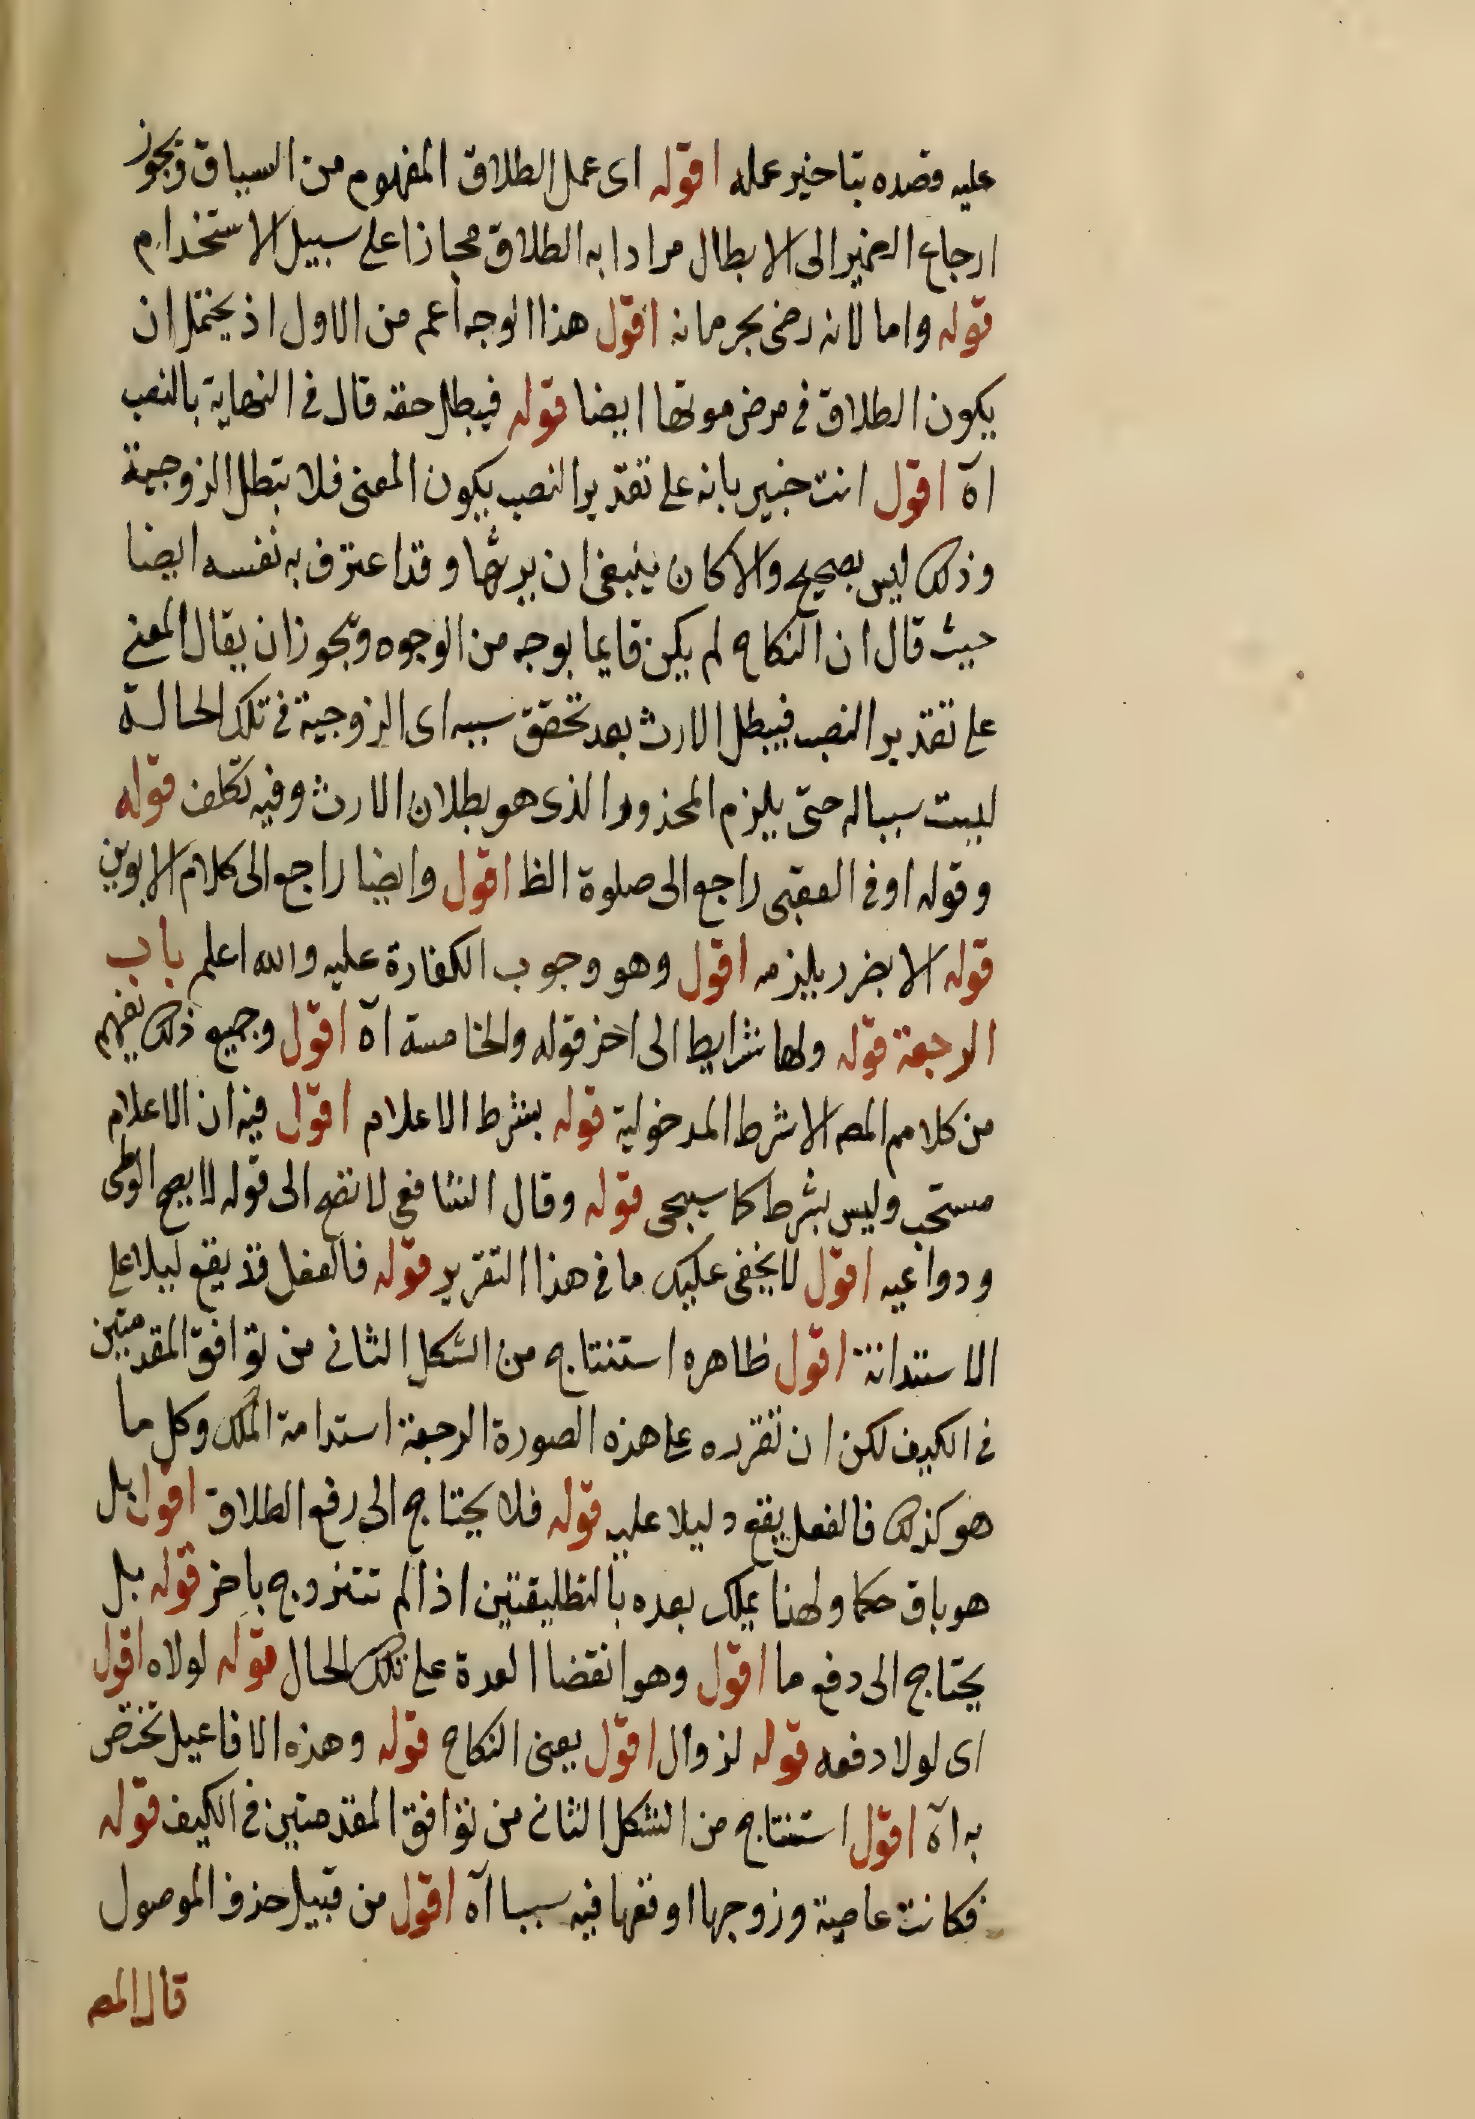 عليه قصده بتاخير عمله اقوله اى عمل الطلاق المفهوم من السياق ويجوز
ارجاع الضمير الى الابطال مرادا به الطلاق مجازا على سبيل الاستخدام
قوله واما لانه رضى بحرمانه اقول هذا الوجه أعم من الاول اذ يحتمل ان
يكون الطلاق فى مرض موتها ايضا قوله فيبطل حقه قال فى النهاية بالنصب
اه اقول انت خبير بانه على تقدير النصب يكون المعنى فلا يبطل الزوجية
وذلك ليس بصحيح والا كان ينبغى ان يرثها وقد اعترف به نفسه ايضا
حيث قال ان النكاح لم يكن قايما بوجه من الوجوه ويجوز ان يقال المعنى
على تقدير النصب فيبطل الارث بعد تحقق سببه اى الزوجية فى تلك الحالة
ليست سببا له حتى يلزم المحذور الذى هو بطلان الارث وفيه تكلف قوله
وقوله او فى العقبى راجع الى صلوة الظ اقول وايضا راجع الى كلام الابوين
قوله الا بضرر يلزمه اقول وهو وجوب الكفارة عليه والله اعلم باب
الرجعة قوله ولها شرايط الى اخر قوله والخامسة اه اقول وجميع ذلك يفهم
من كلام المصه الا شرط المدخولية قوله بشرط الاعلام اقول فيه ان الاعلام
مستحب وليس بشرط كما سيجى قوله وقال الشافعى لا تصح الى قوله لا يصح الوطى
ودواعيه اقول لا يخفى عليك ما فى هذا التقرير قوله فالفعل قد يقع دليلا على
الاستدانة اقول ظاهره استنتاج من الشكل الثانى من توافق المقدمتين
فى الكيف لكن ان تقرره على هذه الصورة الرجعة استدامة الملك وكل ما
هو كذلك فالفعل يقع دليلا عليه قوله فلا يحتاج الى رفع الطلاق اقول بل
هو باق حكما ولهذا يملك بعده بالتطليقتين اذا لم تتزوج باخر قوله بل
يحتاج الى دفع ما اقول وهو انقضا العدة على تلك الحال قوله لولاه اقول
اى لولا دفعه قوله لزوال اقول يعنى النكاح قوله وهذه الافاعيل تختص
به اه اقول استنتاج من الشكل الثانى من توافق المقدمتين فى الكيف قوله
فكانت عاصية وزوجها اوقعها فيه سببا اه اقول من قبيل حذف الموصول
قال المصه